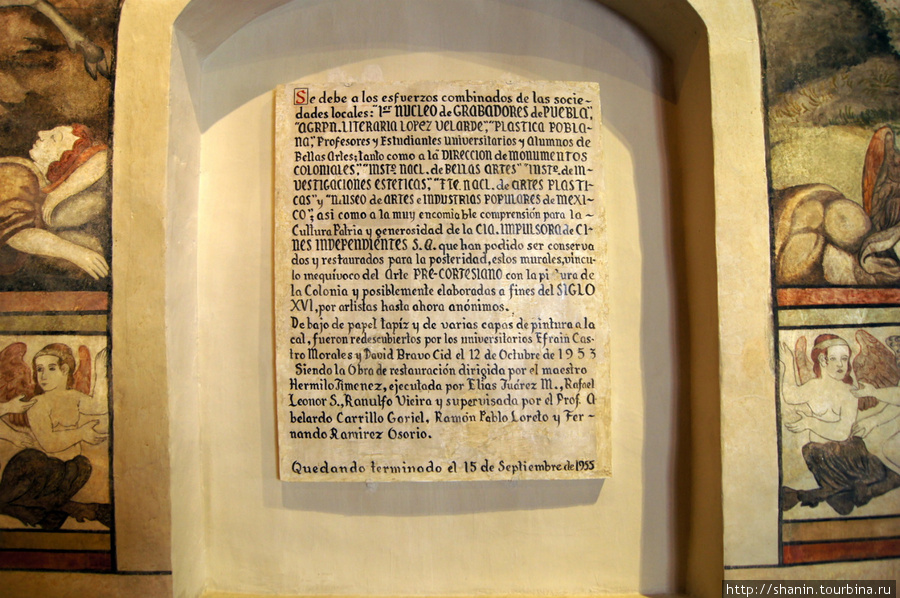 Se debe a los esfuerzos combinados de las socie-
dades locales: "1er NUCLEO de GRABADORES de PUEBLA",
"AGRPN. LITERARIA LOPEZ VELARDE", "PLASTICA POBLA-
NA", Profesores y Estudiantes universitarios y Alumnos de
Bellas Artes; tanto como a la DIRECCION de MONUMENTOS
COLONIALES", "INSTO. NACL. de BELLAS ARTES" "INSTO. de IN-
VESTIGACIONES ESTETICAS", "FTE. NACL. de ARTES PLASTI-
CAS" y "MUSEO de ARTES e INDUSTRIAS POPULARES de MEXI-
CO"; asi como a la muy encomiable comprensión para la -
Cultura Patria y generosidad de la CIA. IMPULSORA de CI-
NES INDEPENDIENTES S. A. que han podido ser conserva
dos y restaurados para la posteridad, estos murales, vincu-
lo inequívoco del Arte PRE-CORTESIANO con la pintura de
la Colonia y posiblemente elaboradas a fines del SIGLO
XVI, por artistas hasta ahora anónimos.
De bajo de papel tapíz y de varias capas de pintura a la
cal, fueron redescubiertos por los universitarios Efraín Cas-
tro Morales y David Bravo Cid el 12 de Octubre de 1953
Siendo la Obra de restauración dirigida por el maestro
Hermilo Jimenez, ejecutada por Elías Juárez M., Rafael
Leonor S., Ranulfo Vieira y supervisada por el Prof. A
belardo Carrillo Gariel. Ramón Pablo Loreto y Fer-
nando Ramirez Osorio.
Quedando terminado el 15 de Septiembre de 1955
http://shanin.tourbina.ru